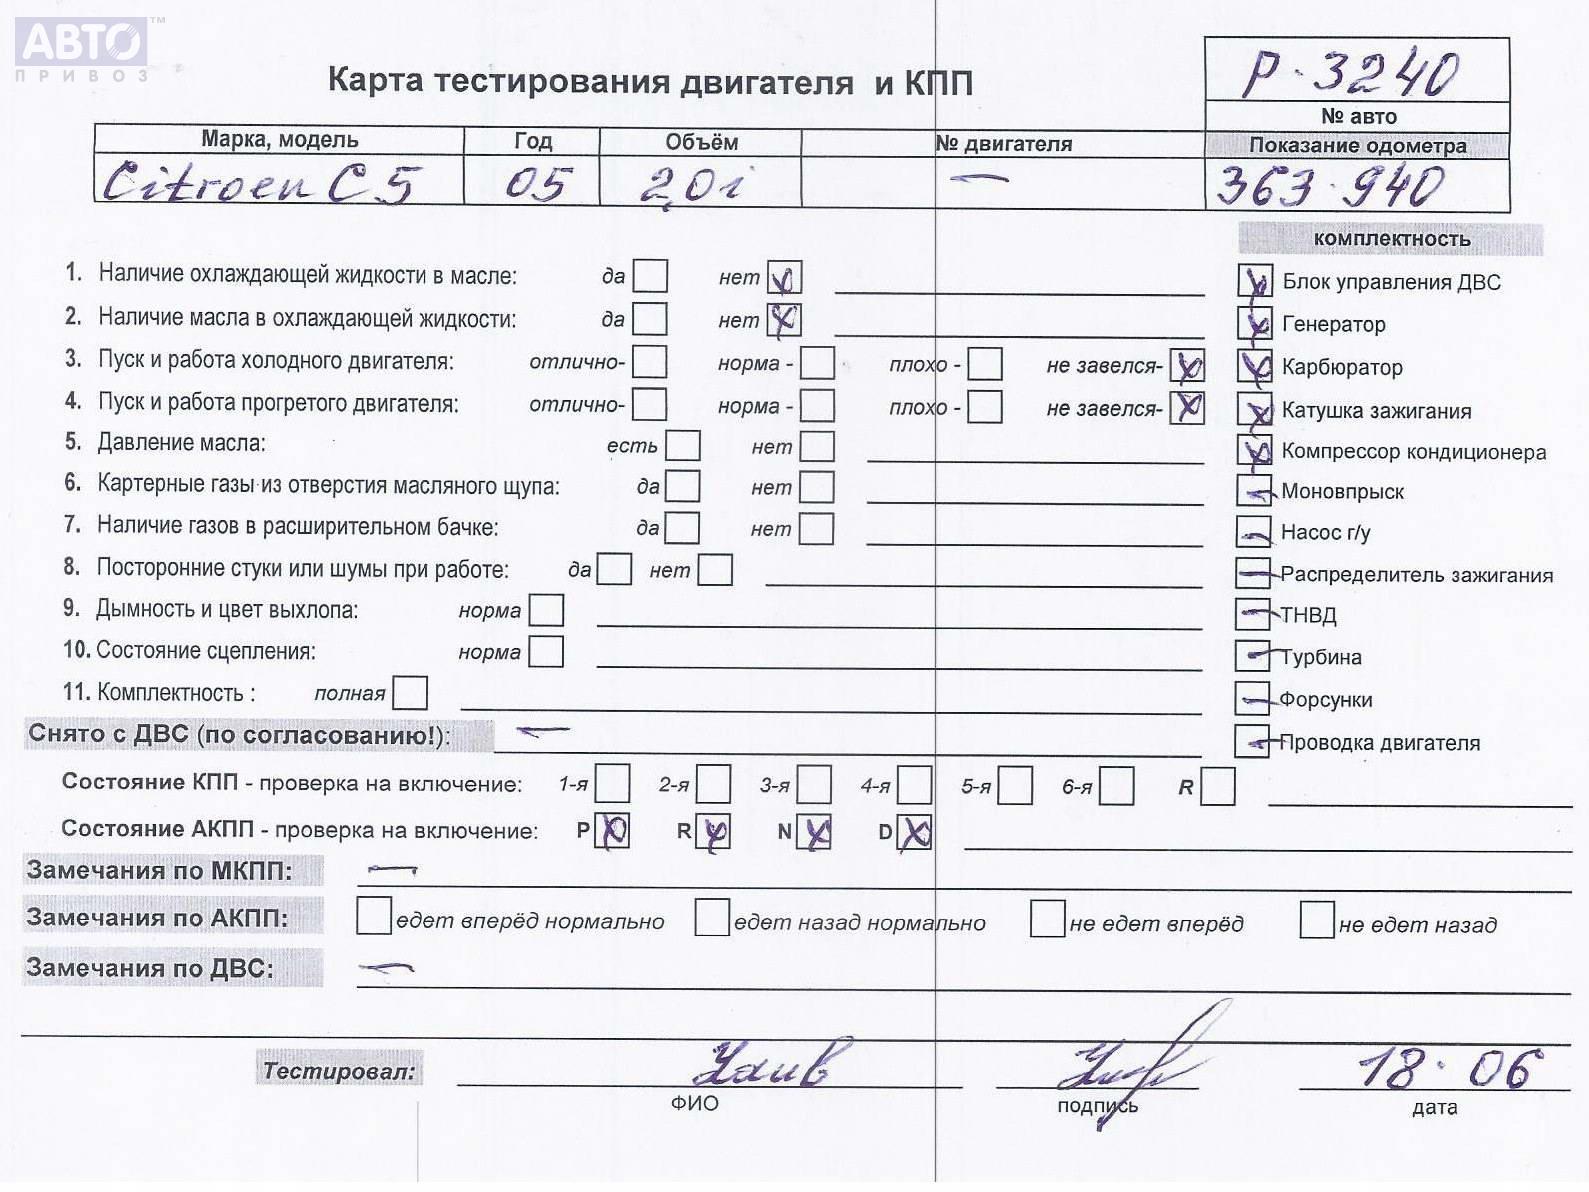 АВТО™
ПРИВОЗ
Карта тестирования двигателя и КПП
Р-3240
№ авто
Марка, модель Год Объём № двигателя Показание одометра
Citroen C5 05 2,0i — 363.940
комплектность
1. Наличие охлаждающей жидкости в масле: да нет
2. Наличие масла в охлаждающей жидкости: да нет
3. Пуск и работа холодного двигателя: отлично- норма - плохо - не завелся-
4. Пуск и работа прогретого двигателя: отлично- норма - плохо - не завелся-
5. Давление масла: есть нет
6. Картерные газы из отверстия масляного щупа: да нет
7. Наличие газов в расширительном бачке: да нет
8. Посторонние стуки или шумы при работе: да нет
9. Дымность и цвет выхлопа: норма
10. Состояние сцепления: норма
11. Комплектность : полная
Блок управления ДВС
Генератор
Карбюратор
Катушка зажигания
Компрессор кондиционера
Моновпрыск
Насос г/у
Распределитель зажигания
ТНВД
Турбина
Форсунки
Проводка двигателя
Снято с ДВС (по согласованию!): —
Состояние КПП - проверка на включение: 1-я 2-я 3-я 4-я 5-я 6-я R
Состояние АКПП - проверка на включение: P R N D
Замечания по МКПП: —
Замечания по АКПП: едет вперёд нормально едет назад нормально не едет вперёд не едет назад
Замечания по ДВС: —
Тестировал: 18.06
ФИО подпись дата